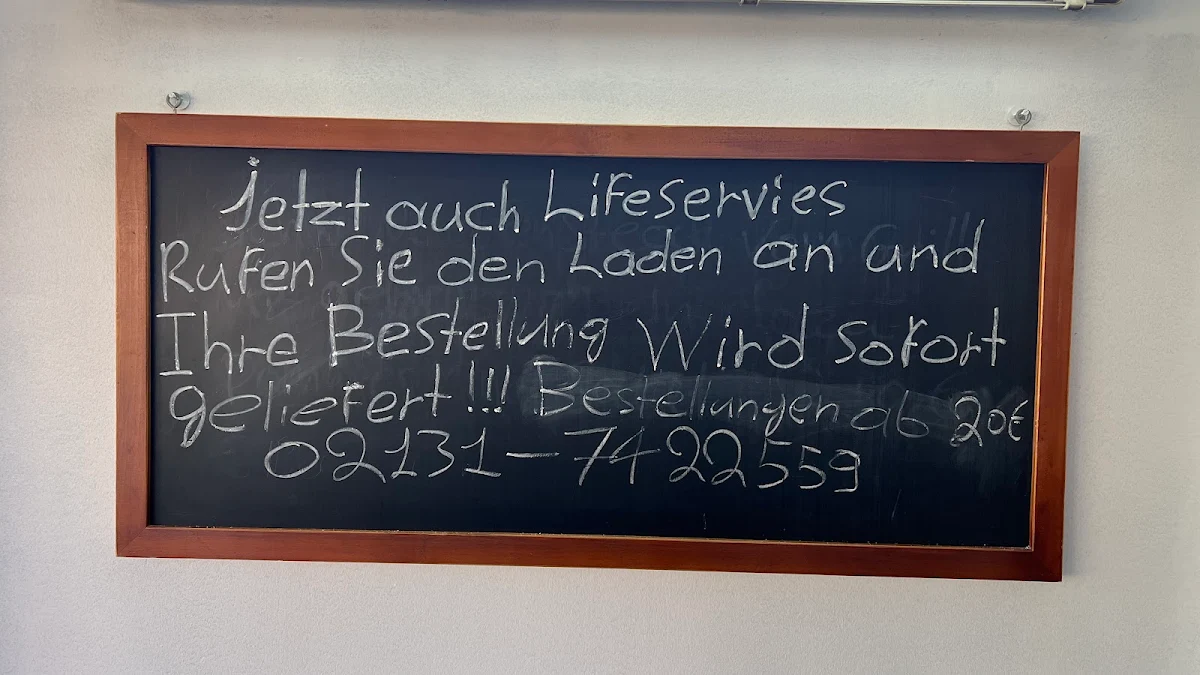 Jetzt auch Lifeservies
Rufen Sie den Laden an und
Ihre Bestellung Wird sofort
geliefert!!! Bestellungen ab 20€
02131-7422559